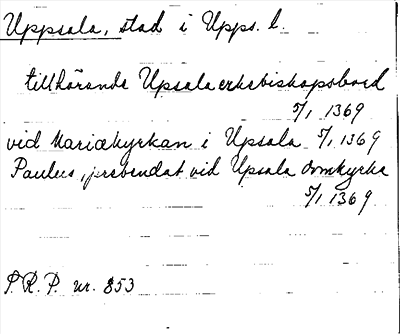 Uppsala, stad i Upps. l.
tillhörande Upsala erkebiskopsbord
5/1 1369
vid Mariækyrkan i Upsala 5/1 1369
Paulus, prebendat vid Upsala domkyrka
5/1 1369
S. R. P. nr. 853